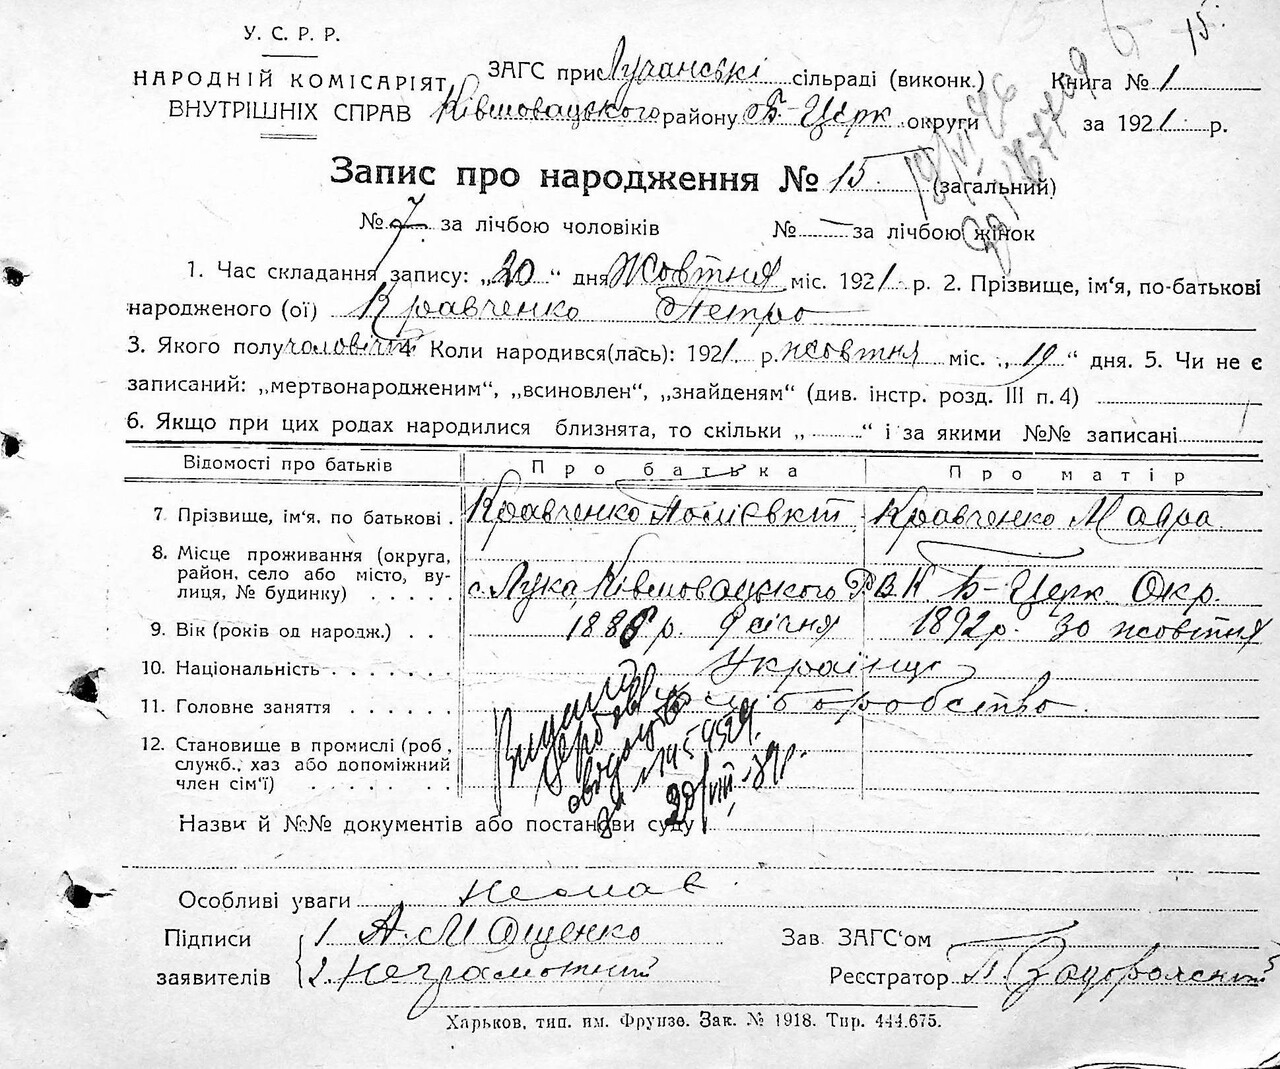 15.
У. С. Р. Р.
НАРОДНІЙ КОМІСАРІЯТ
ВНУТРІШНІХ СПРАВ
ЗАГС при Лучанські сільраді (виконк.) Книга № 1
району Б-Церк округи за 1921 р.
Запис про народження № 15 (загальний)
№ 7 за лічбою чоловіків № — за лічбою жінок
1. Час складання запису: „20“ дня Жовтня міс. 1921 р. 2. Прізвище, ім‘я, по-батькові
народженого (ої) Кравченко Петро
3. Якого полу чоловічої 4. Коли народився(лась): 1921 р. жовтня міс. „19“ дня. 5. Чи не є
записаний: „мертвонародженим“, „всиновлен“, „знайденям“ (див. інстр. розд. III п. 4)
6. Якщо при цих родах народилися близнята, то скільки „ “ і за якими №№ записані
Відомості про батьків Про батька Про матір
7 Прізвище, ім‘я, по батькові . Кравченко Полієвкт Кравченко Мавра
8. Місце проживання (округа,
район, село або місто, ву-
лиця, № будинку) с. Лука, Р.В.К Б-Церк Окр.
9. Вік (років од народж.) 1886 р. 9 січня 1892 р. 30 жовтня
10. Національність Українці
11. Головне заняття хліборобство
12. Становище в промислі (роб.,
служб., хаз або допоміжний
член сім‘ї)
Видано
свідоцтво
20/VIII-
Назви й №№ документів або постанови суду
Особливі уваги немає
Підписи 1 А. Зав. ЗАГС‘ом
заявителів 2. Неграмотний Реєстратор П.
Харьков, тип. им. Фрунзе. Зак. № 1918. Тир. 444.675.